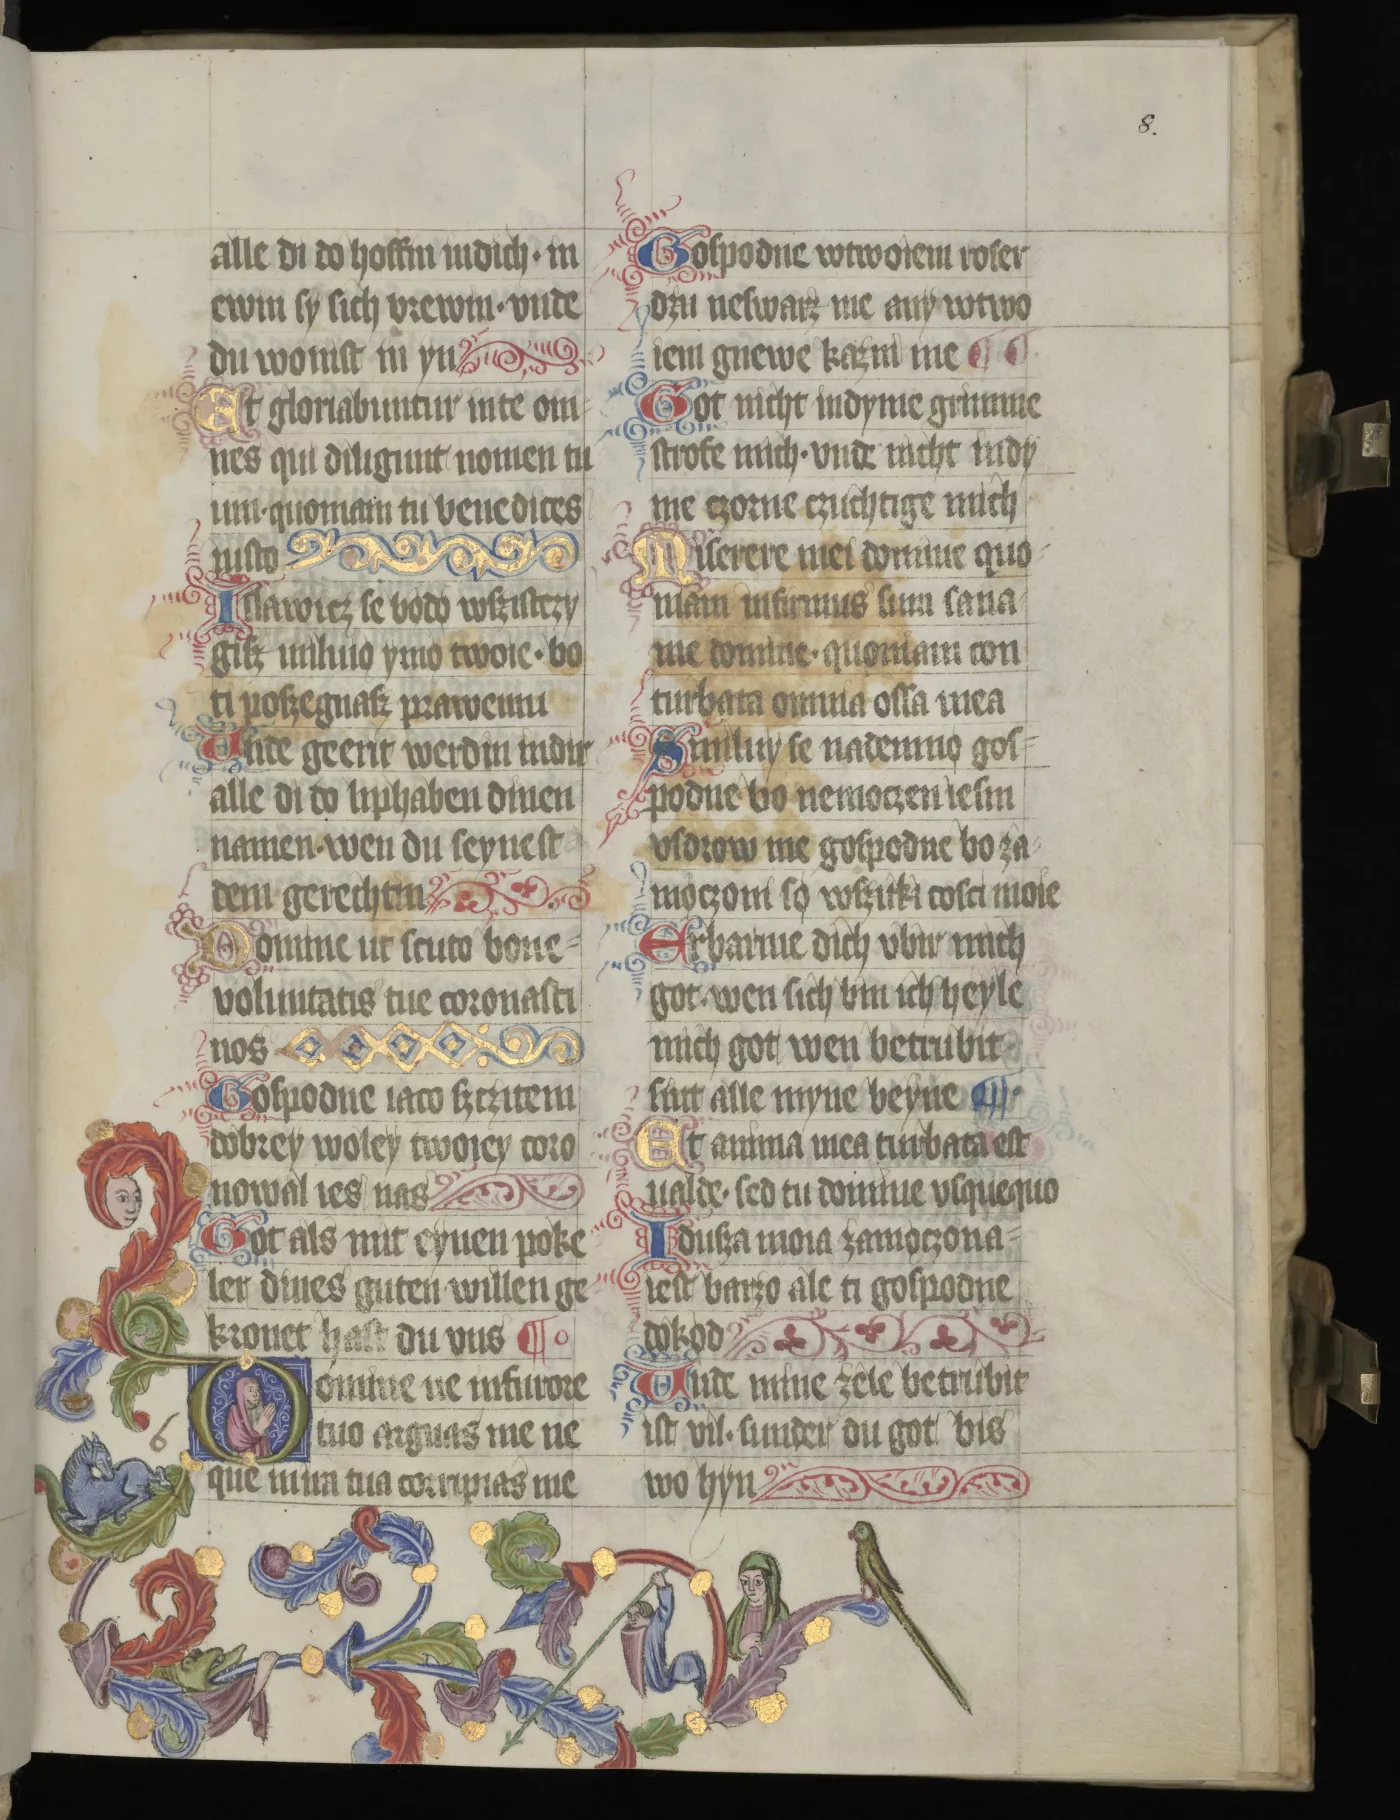 8.
alle di do hoffin indich · in
ewin sy sich vrewin · vnde
du wonist in yn
Et gloriabuntur inte om
nes qui diligunt nomen tu
um · quoniam tu benedices
iusto
I slawicz se bodo wszistczy
gisz miluio ymo twoie · bo
ti poszegnasz prawemu
Unde geerit werdin indir
alle di do liphaben dinen
namen · wen du seynest
dem gerechtin
Domine ut scuto bone
voluntatis tue coronasti
nos
Gospodne iaco szczitem
dobrey woley twoiey coro
nowal ies nas
Got als mit eynen poke
ler dines guten willen ge
kronet hast du vns
6
Domine ne infurore
tuo arguas me ne
que inira tua corripias me
Gospodne wtwoiem roser
dzu neswarz me any wtwo
iem gnewe kazni me
Got nicht indyme grimme
strofe mich · vnde nicht indy
me czorne czuchtige mich
Miserere mei domine quo
niam infirmus sum sana
me domine · quoniam con
turbata omnia ossa mea
Smiluy se nademno gos
podne bo nemoczen iesm
vsdrow me gospodne bo za
moczoni so wszitki cosci moie
Erbarme dich vbir mich
got · wen sich bin ich heyle
mich got wen betrubit
sint alle myne beyne
Et anima mea turbata est
ualde · sed tu domine vsquequo
I dusza moia zamoczona
iest barzo ale ti gospodne
dokod
Unde mine zele betrubit
ist vil · sunder du got bis
wo hyn